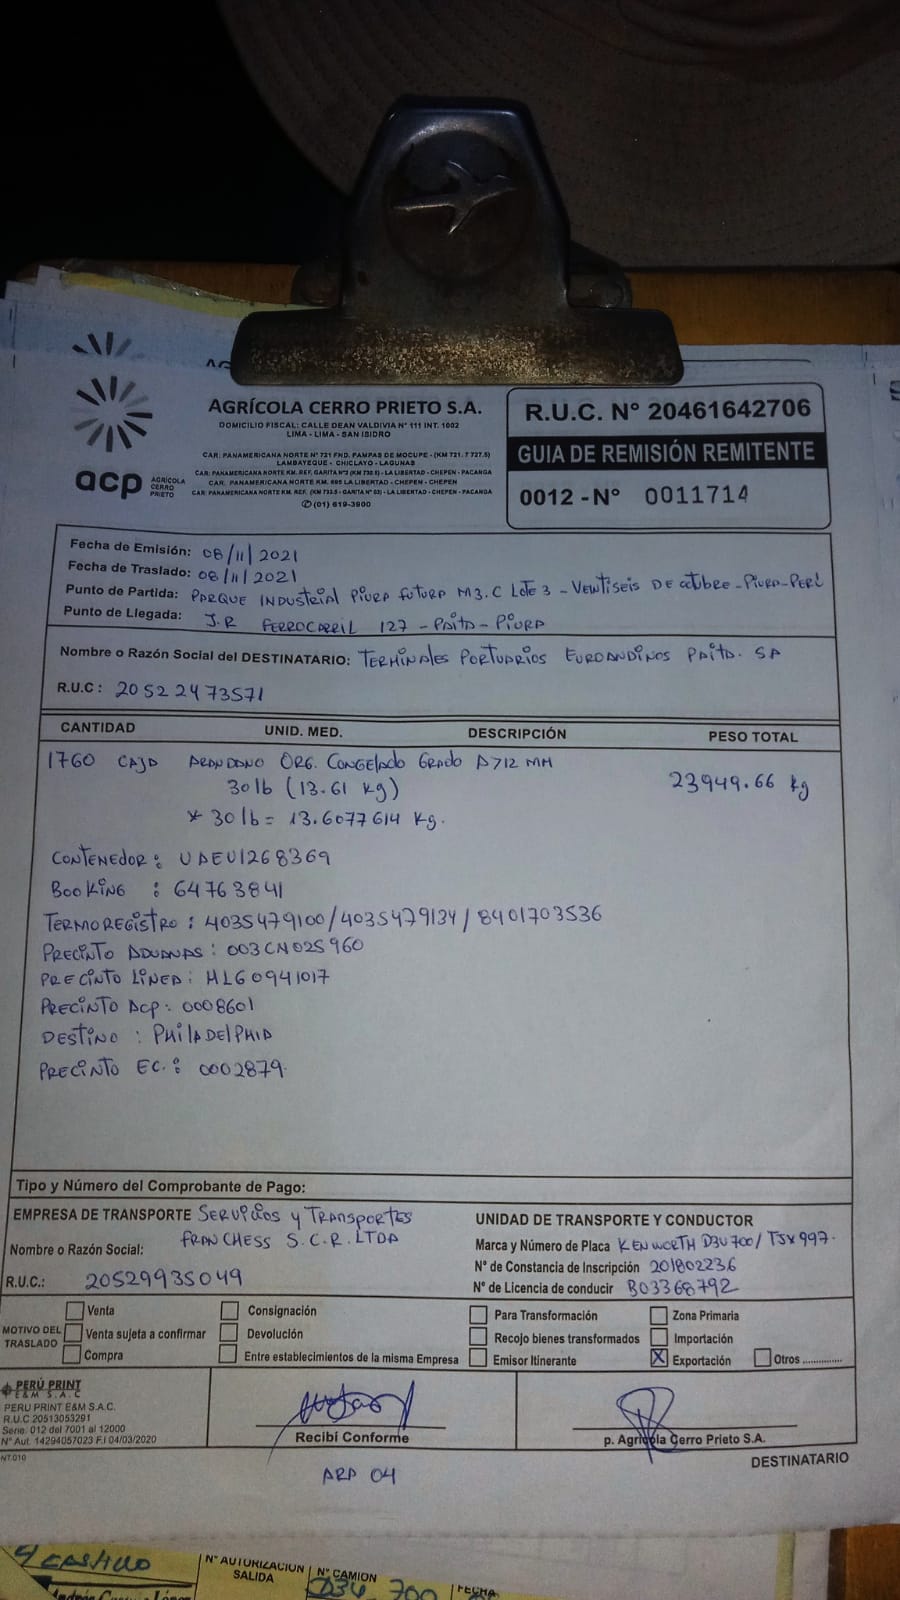 AGRÍCOLA CERRO PRIETO S.A.
DOMICILIO FISCAL: CALLE DEAN VALDIVIA N° 111 INT. 1002
LIMA - LIMA - SAN ISIDRO
CAR. PANAMERICANA NORTE N° 721 FND. PAMPAS DE MOCUPE - (KM 721. 7 727.5)
LAMBAYEQUE - CHICLAYO - LAGUNAS
CAR. PANAMERICANA NORTE KM. REF. GARITA N°2 (KM 732.5) - LA LIBERTAD - CHEPEN - PACANGA
CAR. PANAMERICANA NORTE KM. 695 LA LIBERTAD - CHEPEN - CHEPEN
CAR. PANAMERICANA NORTE KM. REF. (KM 733.5 - GARITA N° 03) - LA LIBERTAD - CHEPEN - PACANGA
(01) 619-3900
acp AGRÍCOLA CERRO PRIETO
R.U.C. N° 20461642706
GUIA DE REMISIÓN REMITENTE
0012 - N° 0011714
Fecha de Emisión: 08/11/2021
Fecha de Traslado: 08/11/2021
Punto de Partida: PARQUE INDUSTRIAL PIURA FUTURA MZ. C Lote 3 - VEINTISEIS DE octubre - PIURA - PERU
Punto de Llegada: J.R FERROCARRIL 127 - PAITA - PIURA
Nombre o Razón Social del DESTINATARIO: TERMINALES PORTUARIOS EUROANDINOS PAITA. SA
R.U.C: 20522473571
CANTIDAD UNID. MED. DESCRIPCIÓN PESO TOTAL
1760 CAJA ARANDANO ORG. CONGELADO GRADO A 712 MM
30 lb (13.61 kg) 23949.66 kg
* 30 lb = 13.6077614 kg.
CONTENEDOR: UAEU1268369
BOOKING : 64763841
TERMOREGISTRO : 4035479100/4035479134/8401703536
PRECINTO ADUANAS: 003CN025960
PRECINTO LINEA: HLG0941017
PRECINTO ACP: 0008601
DESTINO : PHILADELPHIA
PRECINTO EC.: 0002879.
Tipo y Número del Comprobante de Pago:
EMPRESA DE TRANSPORTE SERVICIOS y TRANSPORTES
Nombre o Razón Social: FRANCHESS S.C.R.LTDA
R.U.C.: 20529935049
UNIDAD DE TRANSPORTE Y CONDUCTOR
Marca y Número de Placa KENWORTH D3U 700/ TJX 997.
N° de Constancia de Inscripción 201802236
N° de Licencia de conducir B03368792
MOTIVO DEL TRASLADO
Venta
Venta sujeta a confirmar
Compra
Consignación
Devolución
Entre establecimientos de la misma Empresa
Para Transformación
Recojo bienes transformados
Emisor Itinerante
Zona Primaria
Importación
X Exportación
Otros ..............
PERÚ PRINT
E&M S.A.C
PERU PRINT E&M S.A.C.
R.U.C 20513053291
Serie. 012 del 7001 al 12000
N° Aut. 14294057023 F.I 04/03/2020
NT.010
Recibí Conforme
p. Agrícola Cerro Prieto S.A.
DESTINATARIO
ARP 04
CASTILLO
N° AUTORIZACION SALIDA
N° CAMION
D3U 700
FECHA